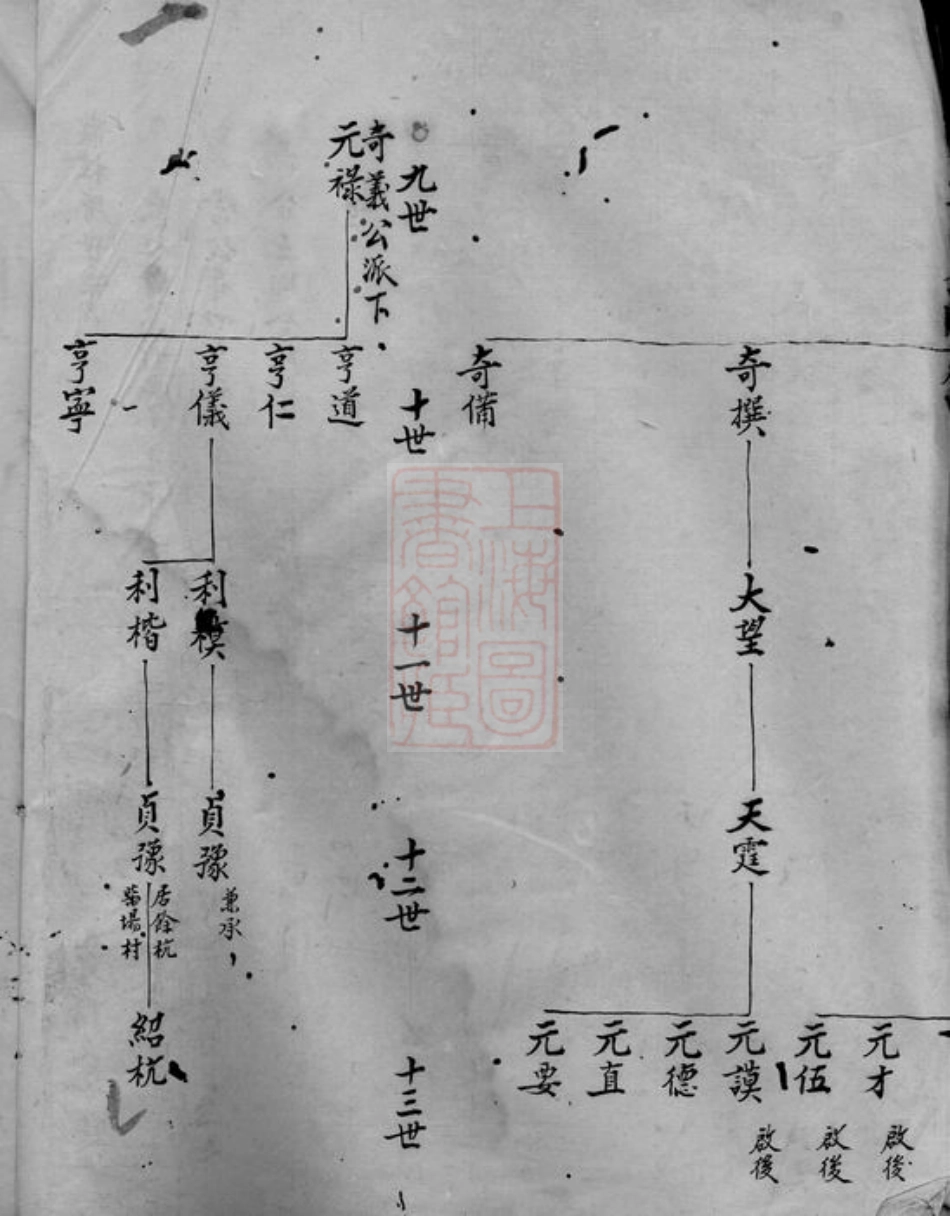 奇備
奇撰
大望
天霆
元才
啟後
元伍
啟後
元謨
啟後
元德
元直
元要
九世
十世
十一世
十二世
十三世
奇義公派下
元祿
亨道
亨仁
亨儀
亨寧
利模
利楷
貞豫
兼承
貞豫
居餘杭
柴場村
紹杭
上海圖
書館藏